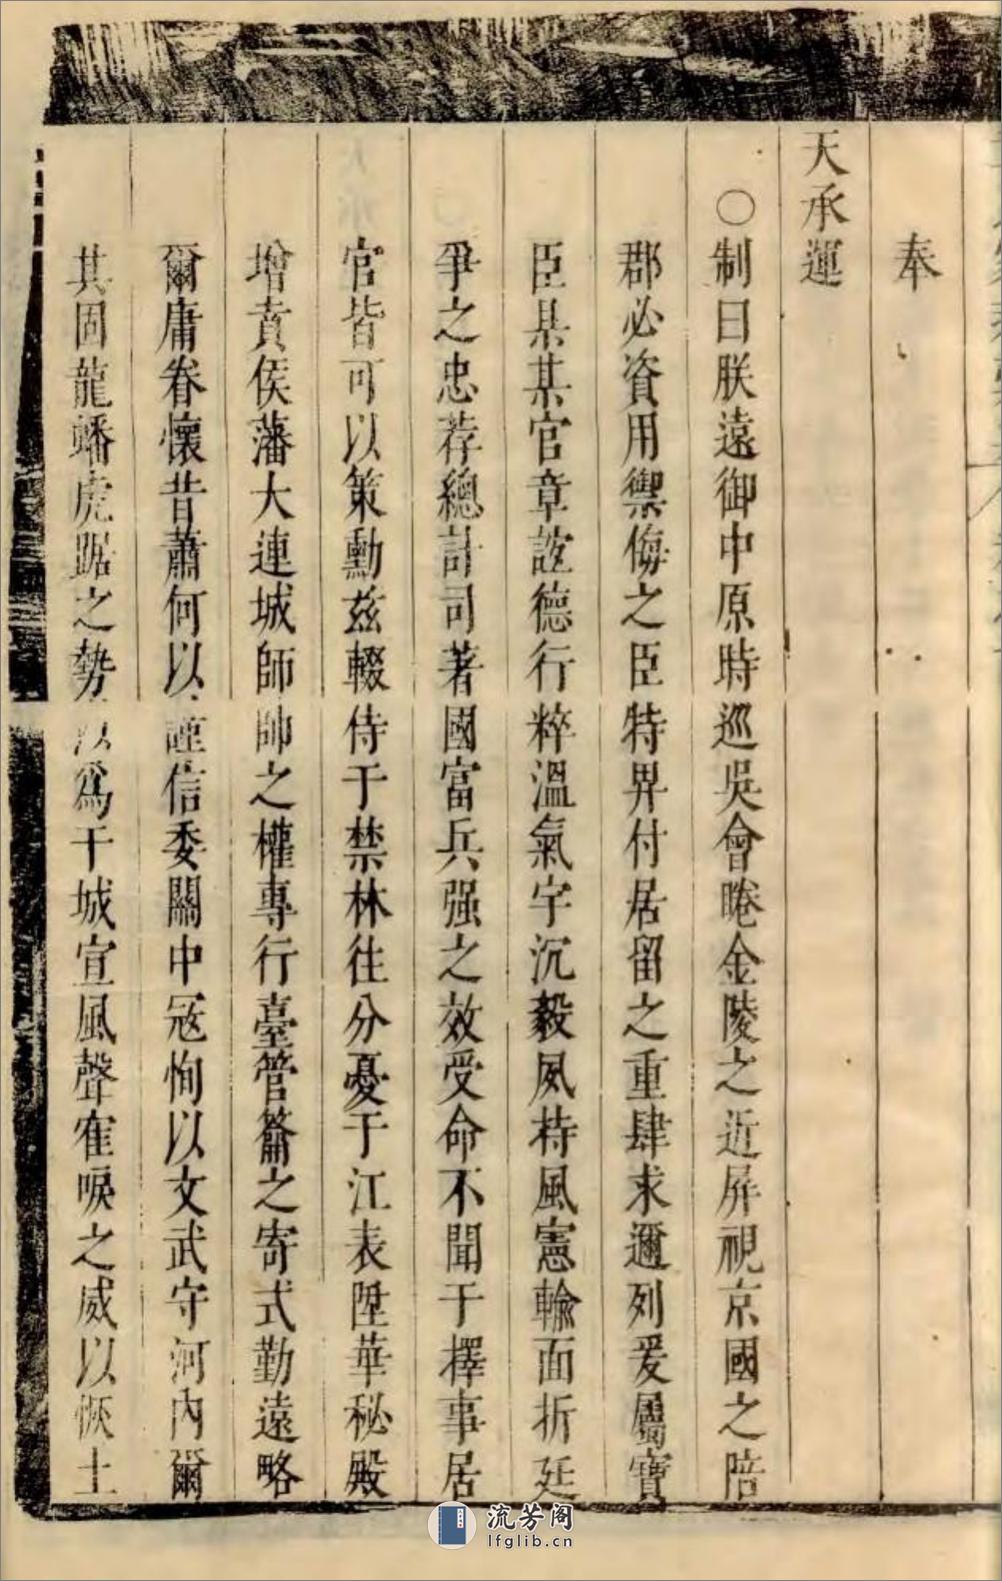 奉
天承運
○制曰朕遠御中原時巡吳會睠金陵之近屏視京國之陪
郡必資用禦侮之臣特畀付居留之重肆求邇列爰屬寶
臣某某官章誼德行粹溫氣宇沉毅夙持風憲輸面折廷
爭之忠荐總計司著國富兵强之效受命不聞于擇事居
官皆可以策勳兹輟侍于禁林往分憂于江表陞華秘殿
增賁侯藩大連城師帥之權專行臺管籥之寄式勤遠略
爾庸眷懷昔蕭何以謹信委關中寇恂以文武守河内爾
其固龍蟠虎踞之勢以爲干城宣風聲寉唳之威以恢土
流芳阁
lfglib.cn